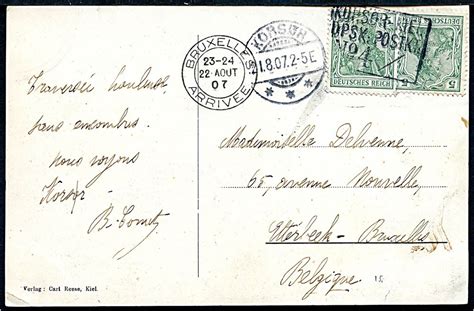 BRUXELLES
23-24
22 AOUT
07
ARRIVEE
KORSØR
21.8.07.2-5E
KORSØR-KIEL
DPSK.POSTKT
No 4
DEUTSCHES REICH
5
5
Traversée houleuse
sans encombres
nous voyons
Korsör
B.
Mademoiselle Delvenne,
65, avenue Nouvelle,
Etterbeek-Bruxelles
Belgique
Verlag: Carl Reese, Kiel.